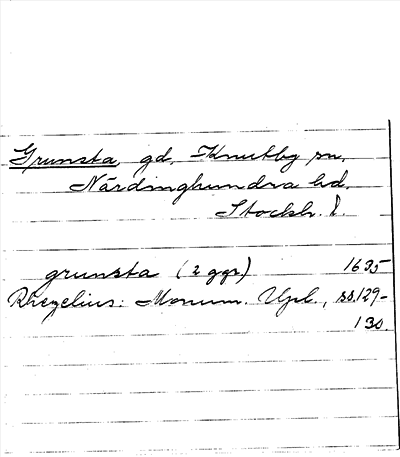 Grunsta, gd, Knutby sn,
Närdinghundra hd,
Stockh. l.
grunsta (2 ggr) 1635
Rhezelius: Monum. Upl., ss. 129-
130.